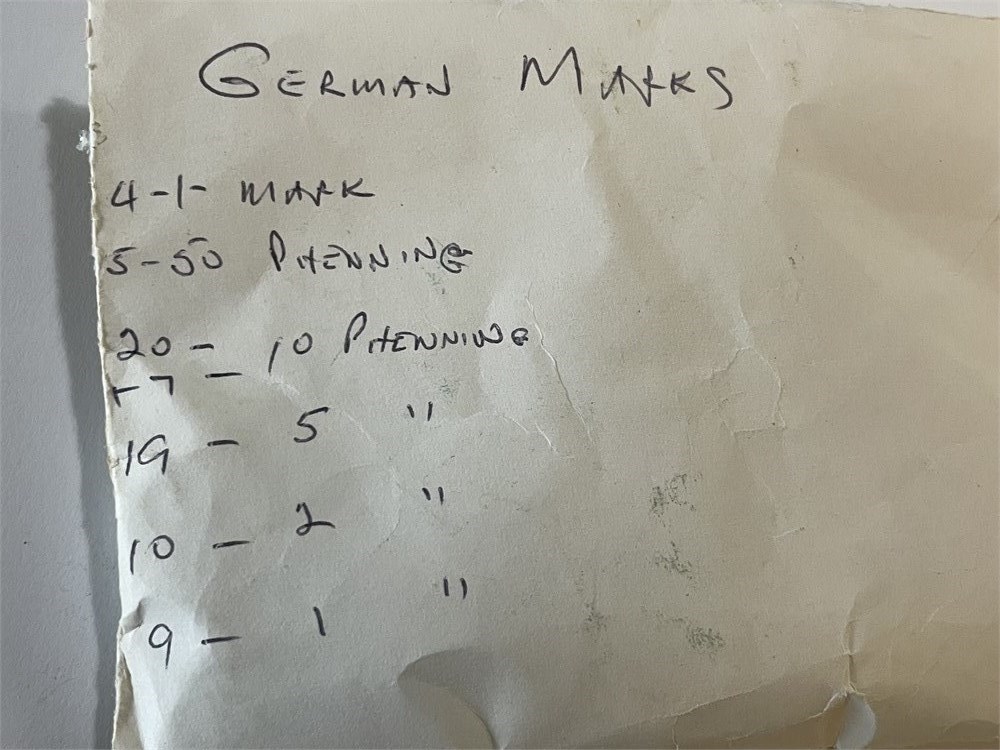 GERMAN MARKS
4-1- MARK
5-50 PHENNING
20 - 10 PHENNING
19 - 5 "
10 - 2 "
9 - 1 "